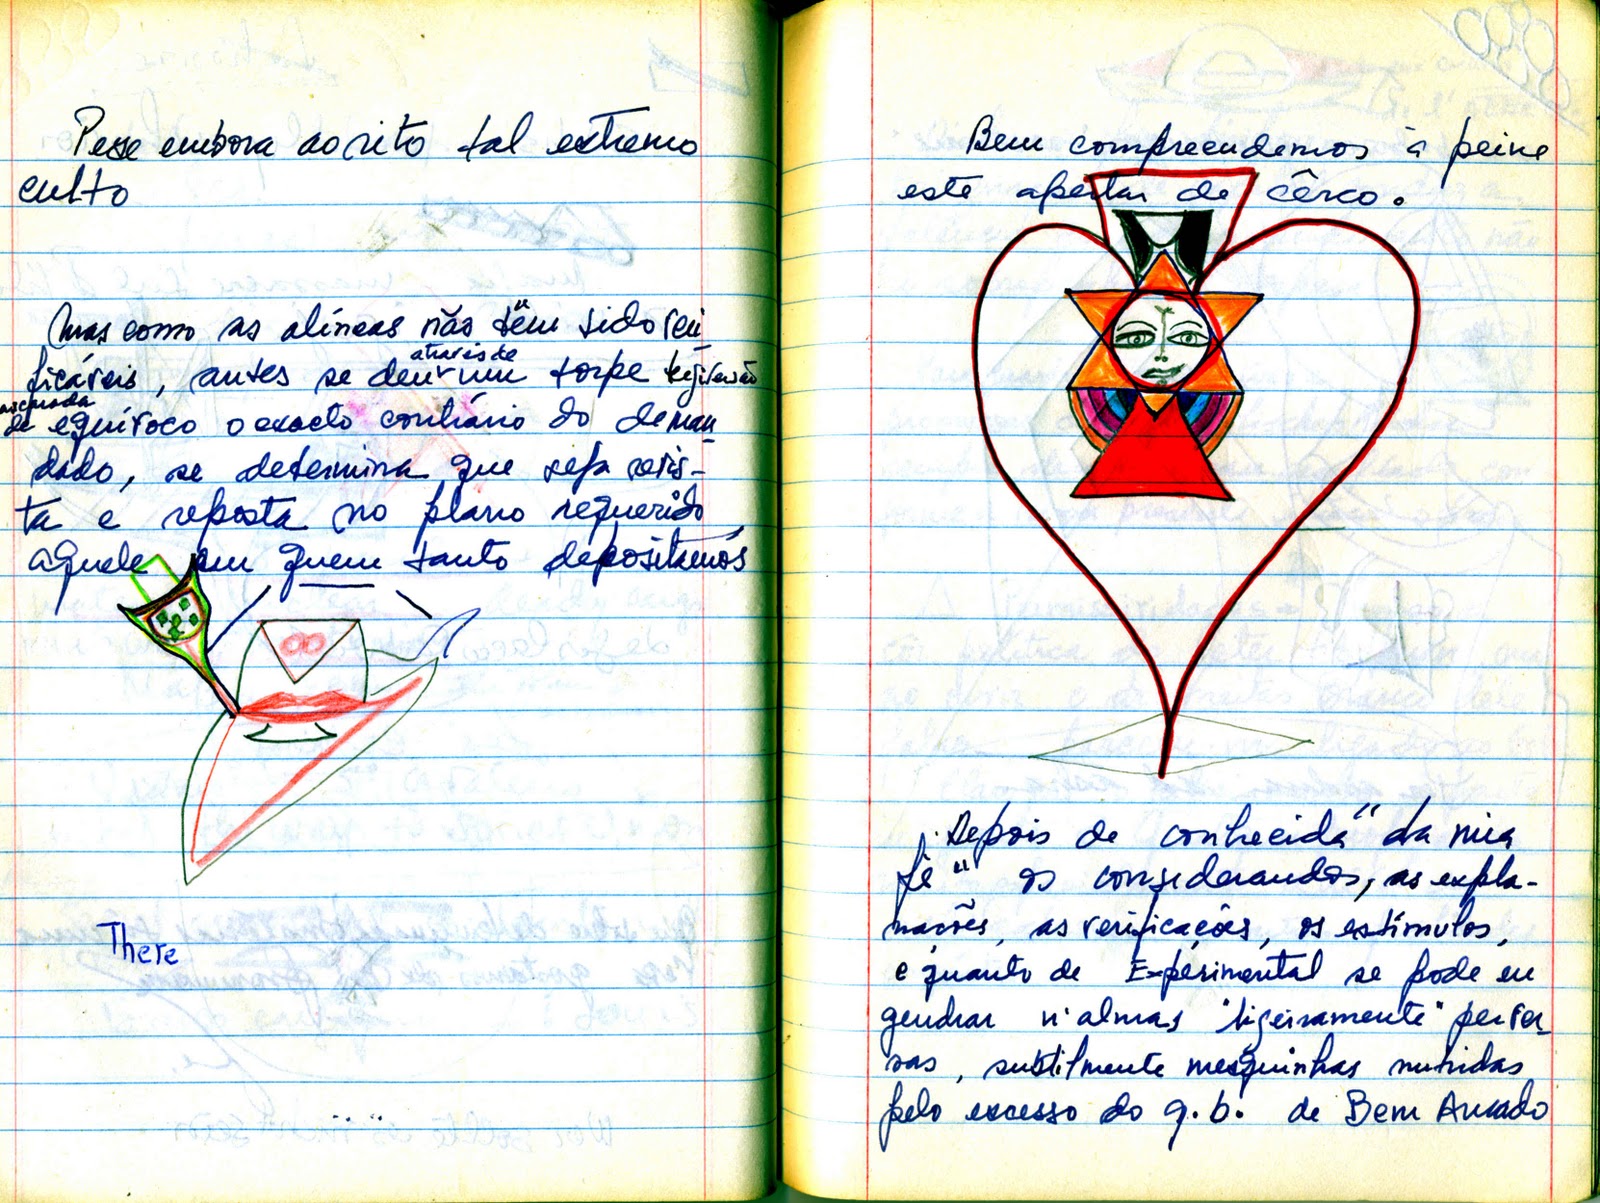 Pese embora ao rito tal extremo
culto
Mas como as alíneas não têm sido rei
ficáveis, antes se deu um torpe
através de
de equívoco o exacto contrário do deman
dado, se determina que seja revis-
ta e reposta no plano requerido
aquele em quem tanto depositamos
There
Bem compreendemos à peine
este apertar de cêrco.
Depois de conhecida "da mia
fé" os considerandos, as expla-
nações, as verificações, os estímulos,
e quanto de Experimental se pode en
gendrar n'almas "ligeiramente" perver-
sas, subtilmente mesquinhas nutridas
pelo excesso do q.b. de Bem Amado